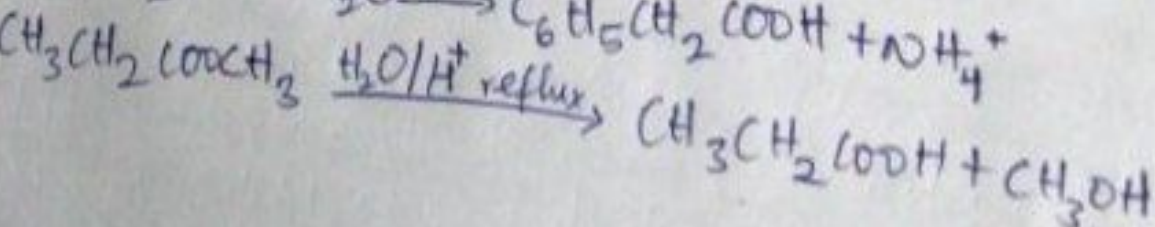 C₆H₅CH₂COOH + NH₄⁺
CH₃CH₂COOCH₃ H₂O/H⁺ reflux → CH₃CH₂COOH + CH₃OH